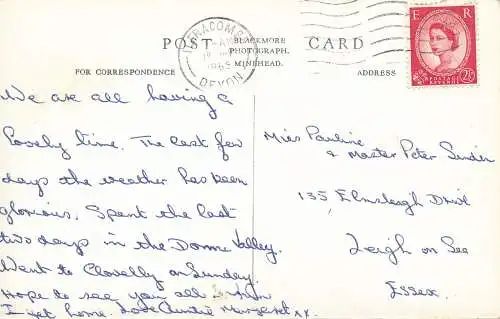 POST CARD
BLACKMORE
PHOTOGRAPH.
MINEHEAD.
FOR CORRESPONDENCE
ADDRESS
ILFRACOMBE
1965
DEVON
E R
POSTAGE
REVENUE
2½D
We are all having a
lovely time. The last few
days the weather has been
glorious. Spent the last
two days in the Doone Valley.
Went to Clovelly on Sunday.
Hope to see you all when
I get home. Love Auntie Margaret xx
Miss Pauline
& Master Peter
135 Elmsleigh Drive
Leigh on Sea
Essex.